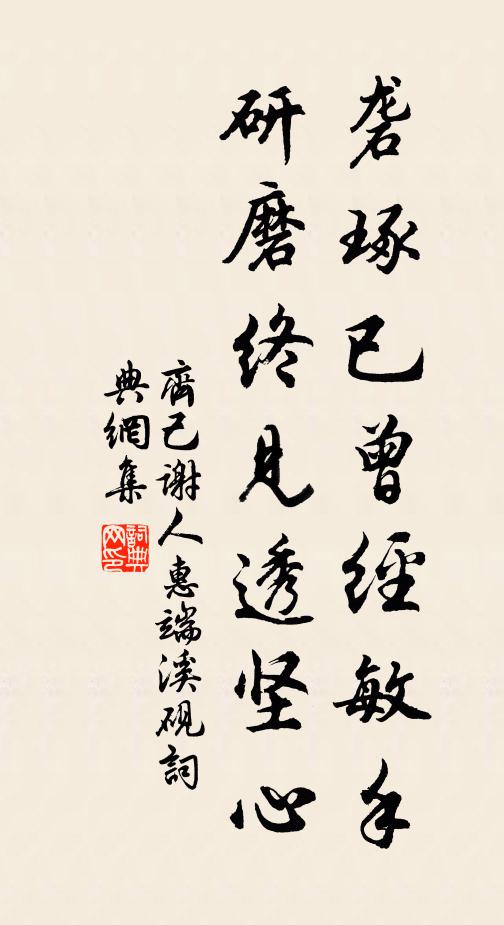 砻琢已曾经敏手
研磨终见透坚心
齊己谢人惠端溪砚詞
典網集
詞典
网印